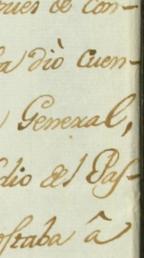 pues de con-
la diò cuen-
General,
dio del Pas-
ostaba â